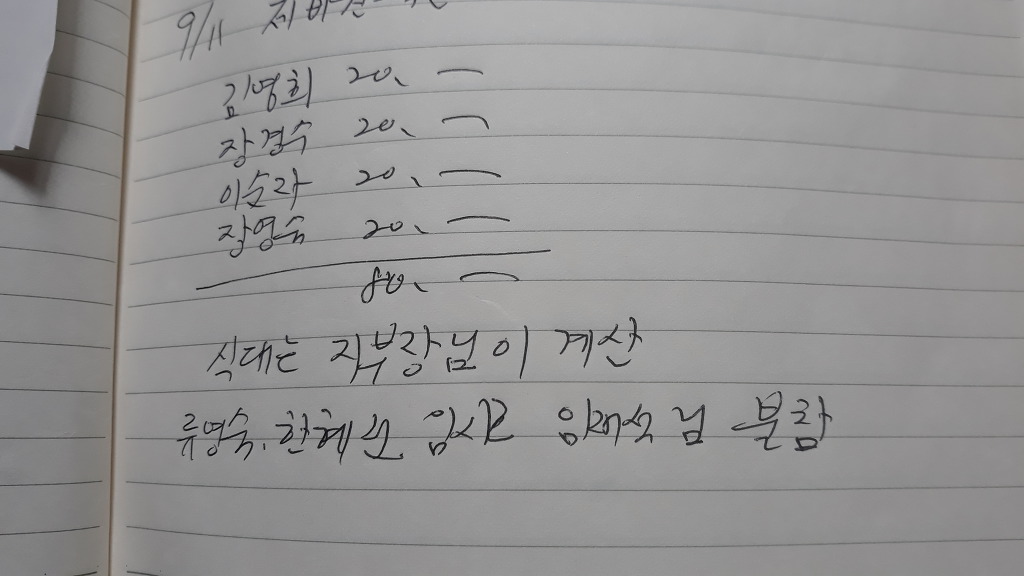 9/11
김영희 20、 —
장경수 20、 —
이순자 20、 —
장영숙 20、 —
80、 —
식대는 지부장님이 계산
류영숙. 한혜선 임재석 님 불참